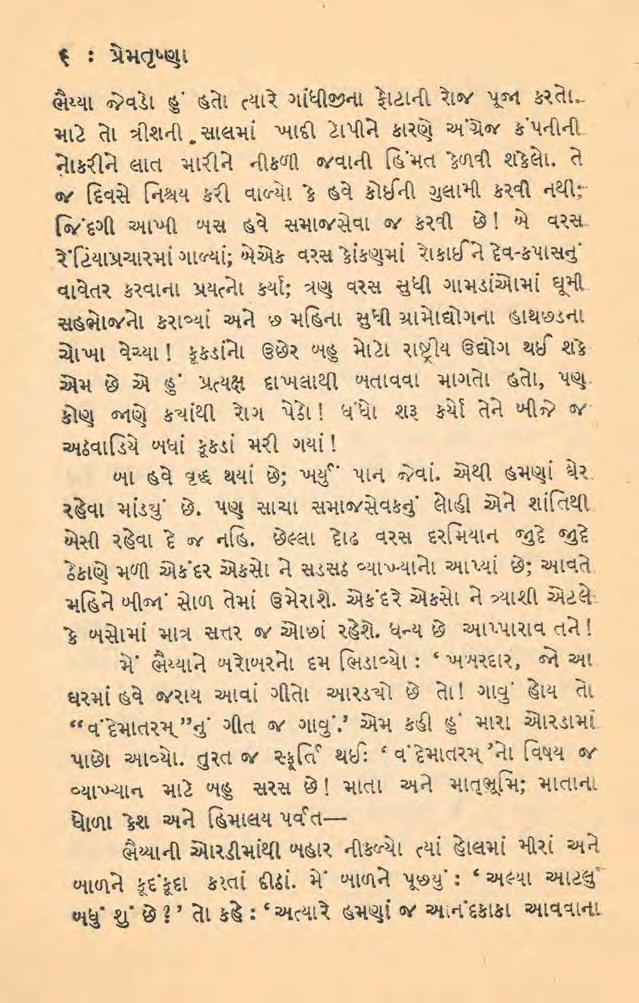 ૬ : પ્રેમતૃષ્ણા
ભૈય્યા જેવડો હું હતો ત્યારે ગાંધીજીના ફોટાની રોજ પૂજા કરતો.
માટે તો ત્રીશની સાલમાં ખાદી ટોપીને કારણે અંગ્રેજ કંપનીની
નોકરીને લાત મારીને નીકળી જવાની હિંમત કેળવી શકેલો. તે
જ દિવસે નિશ્ચય કરી વાળ્યો કે હવે કોઈની ગુલામી કરવી નથી;
જિંદગી આખી બસ હવે સમાજસેવા જ કરવી છે! બે વરસ
રેંટિયાપ્રચારમાં ગાળ્યાં; બેએક વરસ કોંકણમાં રોકાઈને દેવ-કપાસનું
વાવેતર કરવાના પ્રયત્નો કર્યા; ત્રણ વરસ સુધી ગામડાંઓમાં ઘૂમી
સહભોજનો કરાવ્યાં અને છ મહિના સુધી ગ્રામોદ્યોગના હાથછડના
ચોખા વેચ્યા! કૂકડાંનો ઉછેર બહુ મોટો રાષ્ટ્રીય ઉદ્યોગ થઈ શકે
એમ છે એ હું પ્રત્યક્ષ દાખલાથી બતાવવા માગતો હતો, પણ
કોણ જાણે ક્યાંથી રોગ પેઠો! ધંધો શરૂ કર્યો તેને બીજે જ
અઠવાડિયે બધાં કૂકડાં મરી ગયાં!
બા હવે વૃદ્ધ થયાં છે; ખર્યું પાન જેવાં. એથી હમણાં ઘેર
રહેવા માંડ્યું છે. પણ સાચા સમાજસેવકનું લોહી એને શાંતિથી
બેસી રહેવા દે જ નહિ. છેલ્લા દોઢ વરસ દરમિયાન જુદે જુદે
ઠેકાણે મળી એકંદર એકસો ને સડસઠ વ્યાખ્યાનો આપ્યાં છે; આવતે
મહિને બીજાં સોળ તેમાં ઉમેરાશે. એકંદરે એકસો ને ત્ર્યાશી એટલે
કે બસોમાં માત્ર સત્તર જ ઓછાં રહેશે. ધન્ય છે આપ્પારાવ તને!
મેં ભૈય્યાને બરોબરનો દમ ભિડાવ્યો : ‘ખબરદાર, જો આ
ઘરમાં હવે જરાય આવાં ગીતો આરડ્યો છે તો! ગાવું હોય તો
“વંદેમાતરમ્”નું ગીત જ ગાવું.’ એમ કહી હું મારા ઓરડામાં
પાછો આવ્યો. તુરત જ સ્ફૂર્તિ થઈઃ ‘વંદેમાતરમ્’નો વિષય જ
વ્યાખ્યાન માટે બહુ સરસ છે! માતા અને માતૃભૂમિ; માતાના
ધોળા કેશ અને હિમાલય પર્વત—
ભૈય્યાની ઓરડીમાંથી બહાર નીકળ્યો ત્યાં હોલમાં મીરાં અને
બાળને કૂદંકૂદા કરતાં દીઠાં. મેં બાળને પૂછ્યું : ‘અલ્યા આટલું
બધું શું છે?’ તો કહે : ‘અત્યારે હમણાં જ આનંદકાકા આવવાના